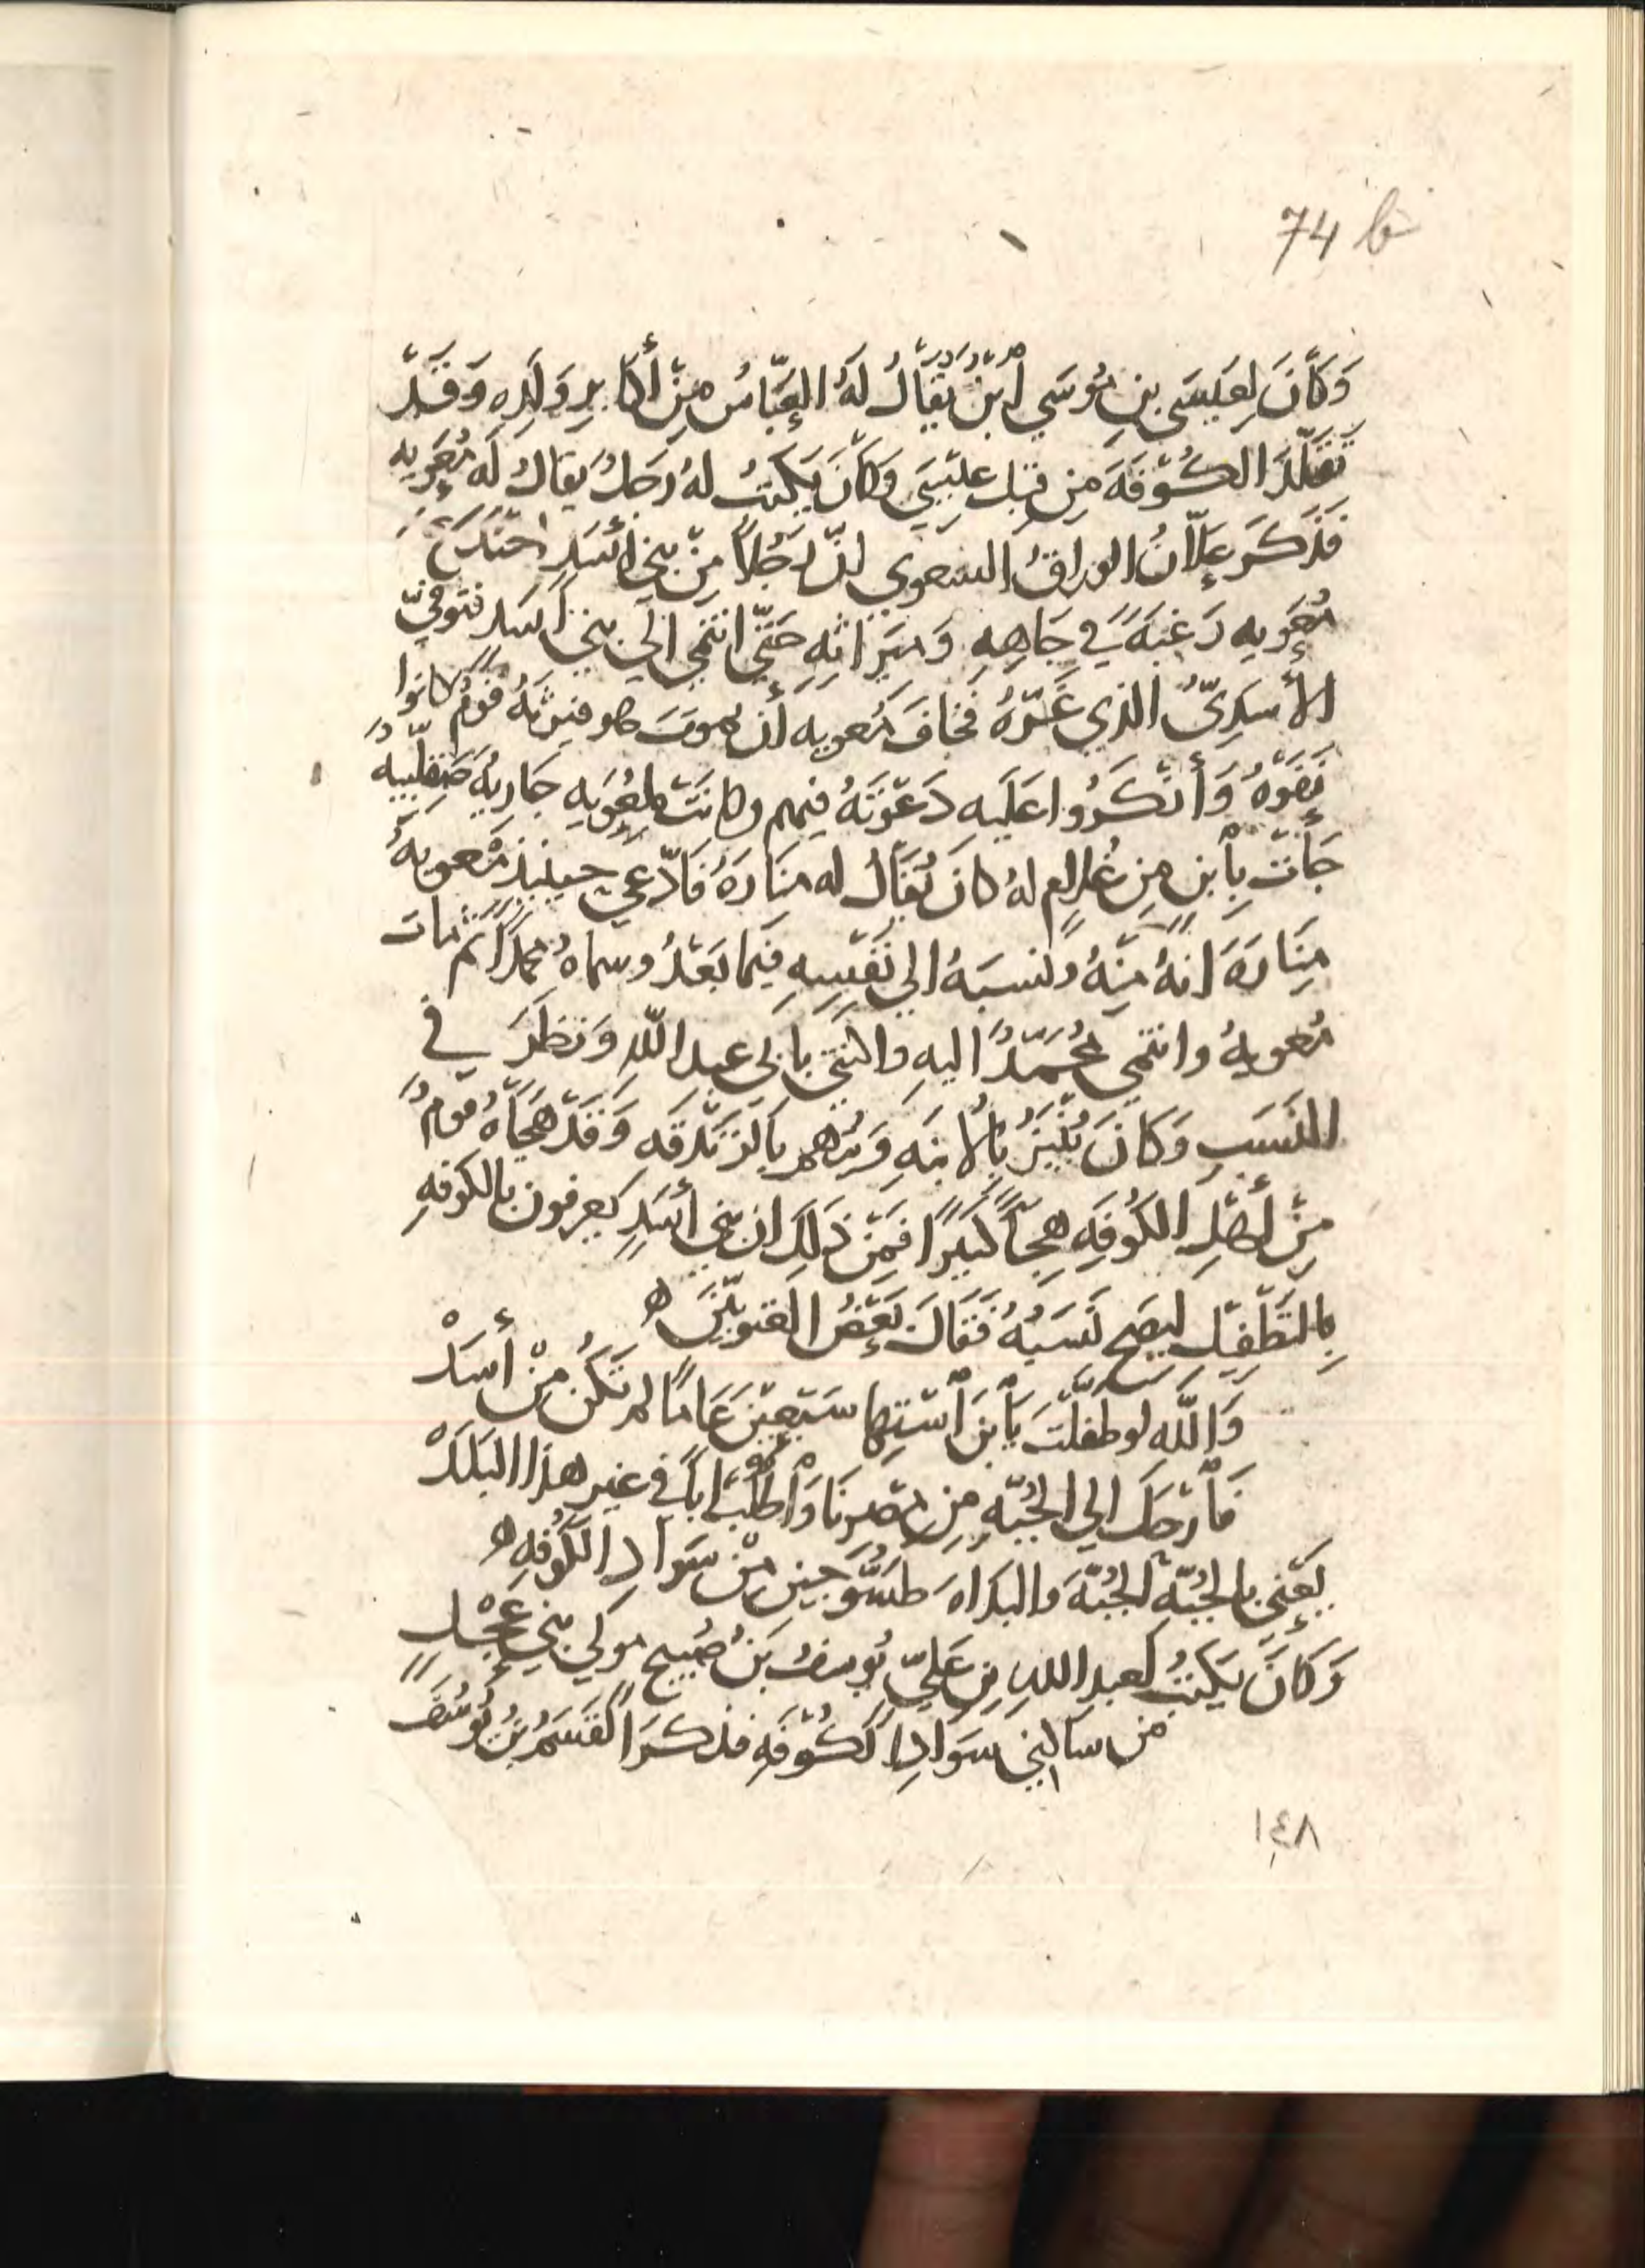 74 b
وَكَانَ لِعِيسَى بنِ مُوسَي اْبْنٌ يُقَالُ لَهُ العَبَّاسُ مِنْ أَكابِرِ وَلَدِهِ وَقَدْ
تَقَلَّدَ الكُوْفَةَ مِن قِبَل عِيْسَي وَكَانَ يَكتبُ لهُ رَجلٌ يقالُ لَه مُعَوِيه
فَذكَرَ عِلَّانُ الوراقُ الشعوبي انّ رَجُلاً مِنْ بني أَسَدٍ
مُعوِيه رَغبَةً فِي جَاهِهِ وَمِيَراثِهِ حَتَّي انتمي الي بني أَسَد فتوفيّ
الأسدِىُّ الذي غَرَّهُ فَخافَ مُعويه أن يموتَ هو فيرثَهُ قومٌ كانوا
نَفَوْهُ وَأنْكَرُوا عَلَيه دَعْوَتَهُ فيهم وكانَتْ لمعُوَيه جَاريةٌ صَقلَبيه
جَأتْ بِأبن مِن غُلامٍ لهُ كانَ يُقَالُ له مَنَارَهُ فَادّعي حينئذٍ مُعويهُ
مِنَارَةَ انهُ مِنهُ ونسبَهُ الي نَفْسِهِ فِيَما بَعْدُ وسماهُ مُحمدًا ثم مات
مُعويهُ وانتمي مُحُمَّدٌ اليهِ واكتني بابي عبد اللّه وَنظَرَ في
النَسَبِ وَكانَ يُنْبَزُ بِالأبنَهِ وَيتهم بَالزندقَه وَقَدْ هَجَاهُ قومٌ
مِنْ أهْلِ الكُوفَهِ هِجَأً كثِيرًا فَمِنْ ذَلِكَ ان بني أسَدٍ يَعرِفون بالكوفهِ
بِالتطْفِيْلِ ليصَح نَسَبُهُ فَقَالَ بَعضُ الغنويّيْنَ ه
وَاللّهِ لو طفلّتَ يَاْبنَ اْسْتِها سَبْعِيْنَ عَامًا لم تَكُنْ مِنْ أسَدْ
فَاْرْحَل الي الجُبَّهِ مِن مِصرِنَا وَاْطلُبْ أباً في غيِر هذا البَلَدْ
يَعْنِى بالجُبّهِ الجُبّةَ والبداةَ طسُّوجين مِنْ سَوادِ الكوفهِ ه
وَكانَ يَكتبُ لعبدِ اللهِ بنِ عَليّ يُوسفُ بنُ صُبيح مولي بني عِجْلٍ
من ساكني سَوَادِ الكُوْفَهِ فذكَرَ القَسمُ بنُ يُوسُفَ
١٤٨